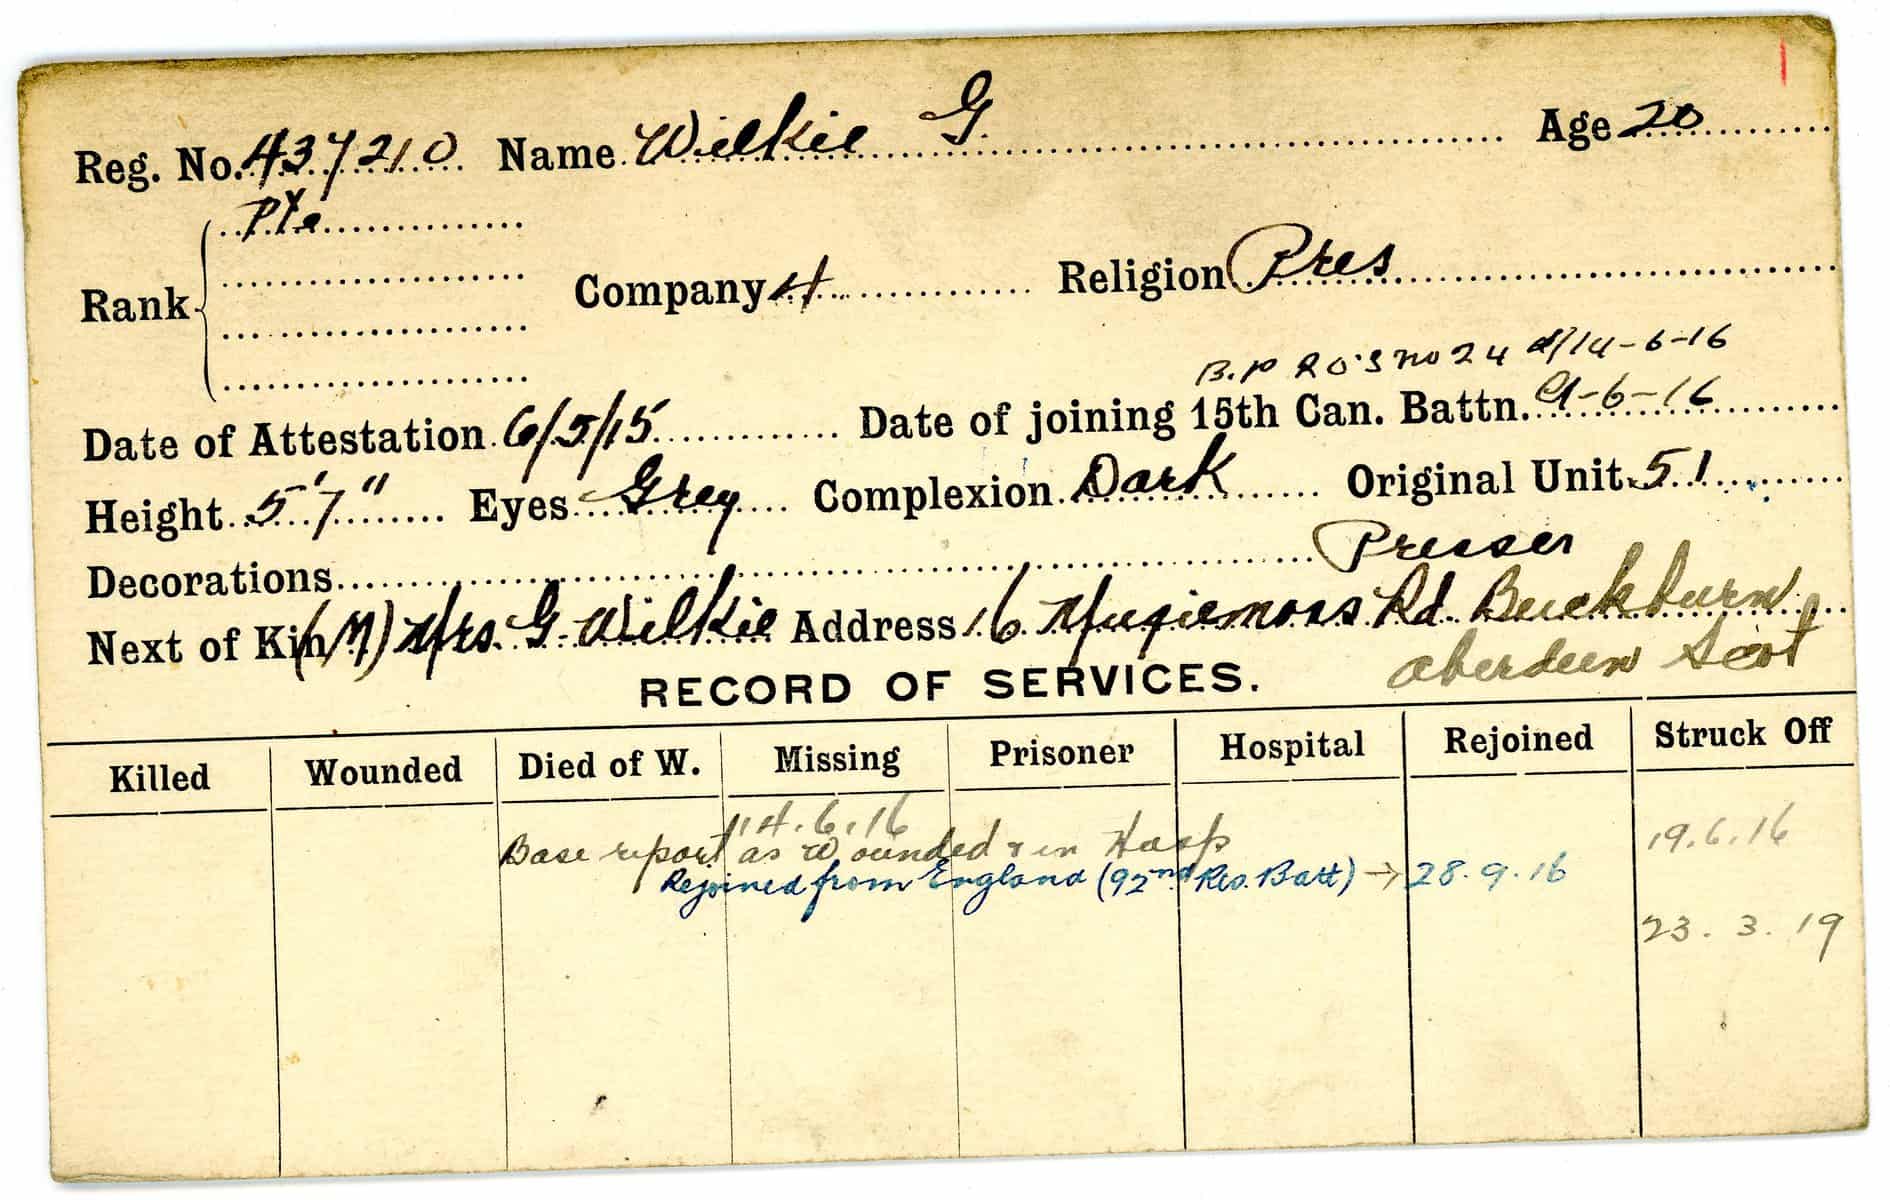 Reg. No. 437210 Name Wilkie G. Age 20
Pte
Rank Company 4 Religion Pres
B.P RO's no 24 d/14-6-16
Date of Attestation 6/5/15 Date of joining 15th Can. Battn. 9-6-16
Height 5'7" Eyes Grey Complexion Dark Original Unit 51
Decorations Presser
Next of Kin (M) Mrs. G. Wilkie Address 16 Mugiemoss Rd. Buckburn
Aberdeen Scot
RECORD OF SERVICES.
Killed Wounded Died of W. Missing Prisoner Hospital Rejoined Struck Off
14.6.16 19.6.16
Base report as wounded & in Hosp
Rejoined from England (92nd Res. Batt) → 28.9.16
23.3.19